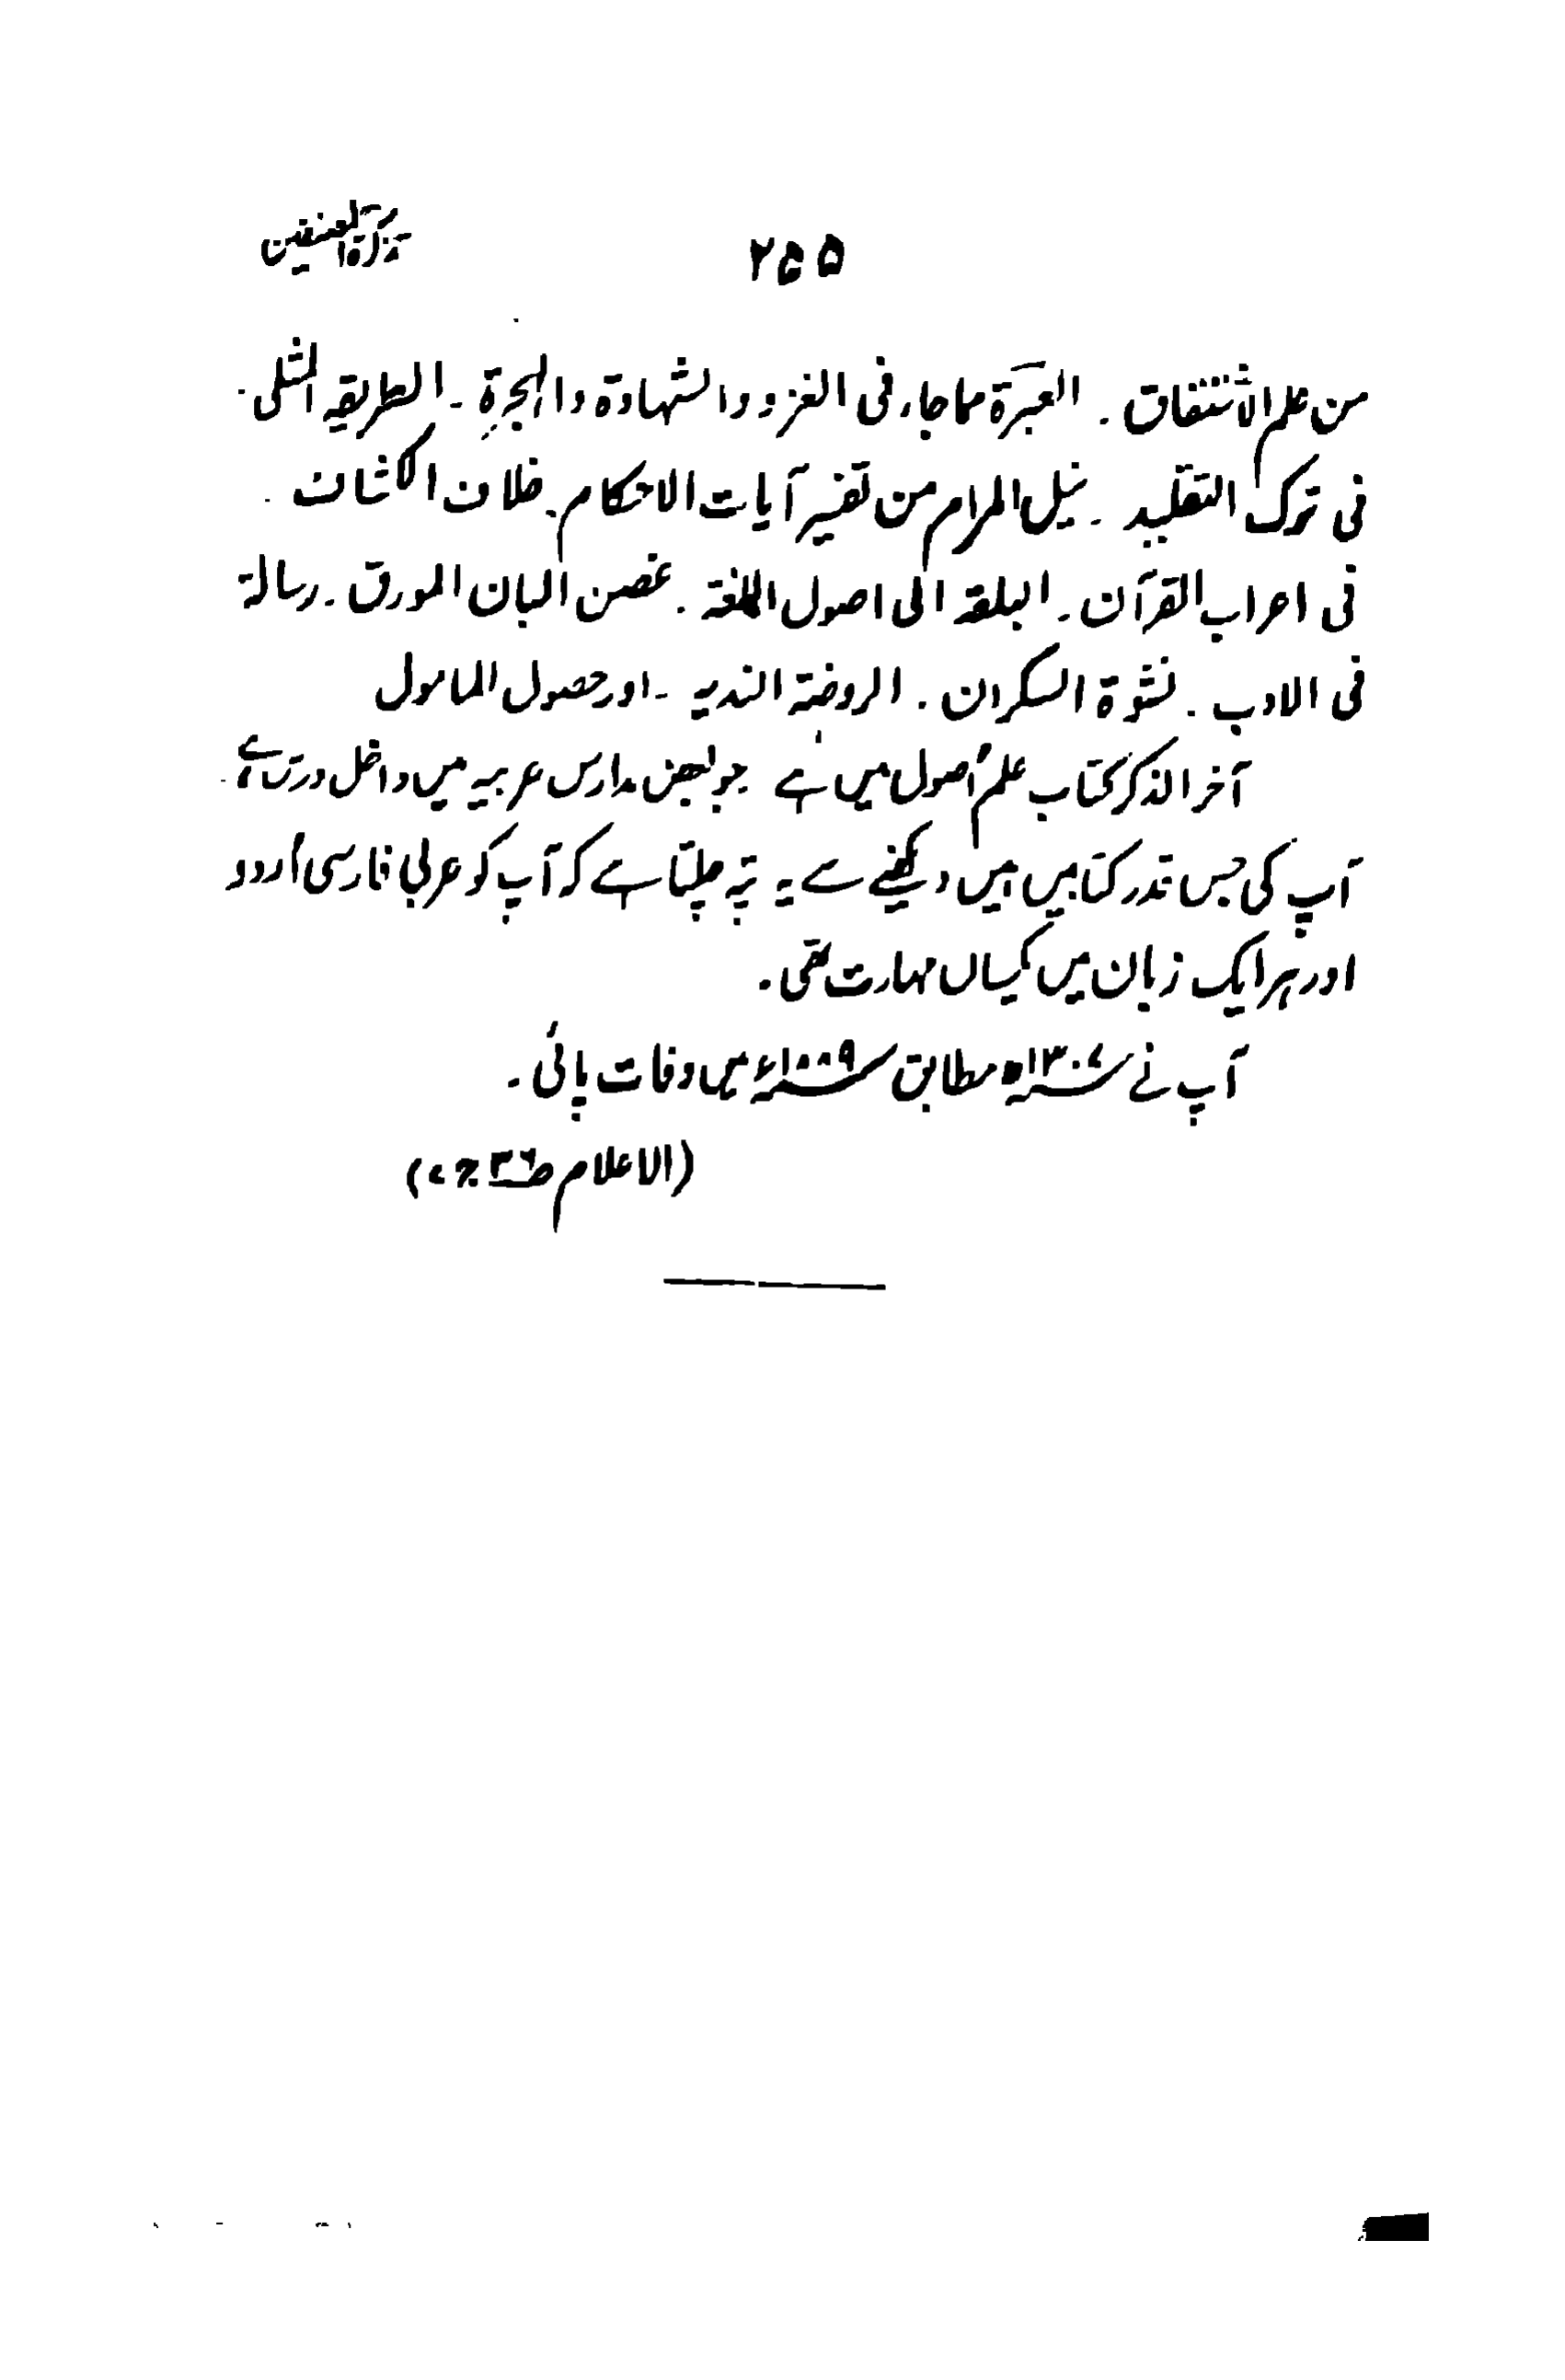 تذکرۃ المصنفین
۲۵۵
من علم الاشتقاق ۔ العبرۃ مما جاء فی الغزو والشہادۃ والہجرۃ ۔ الطریقہ المثلی ۔
فی ترک التقلید ۔ نیل المرام من تفسیر آیات الاحکام ۔ خلاف الکشاف ۔
فی اعراب القرآن ۔ البلغۃ الی اصول اللغۃ ۔ غصن البان المورق ۔ رسالۃ
فی الادب ۔ نشوۃ السکران ۔ الروضۃ الندیہ ۔ اور حصول المامول
آخر الذکر کتاب علم اصول میں ہے جو بعض مدارس عربیہ میں داخل درس ہے ۔
آپ کی جس قدر کتابیں ہیں دیکھنے سے یہ پتہ چلتا ہے کہ آپ کو عربی فارسی اُردو
اور ہر ایک زبان میں یکساں مہارت تھی ۔
آپ نے ۱۳۰۷ھ مطابق ۱۸۸۹ء میں وفات پائی ۔
(الاعلام